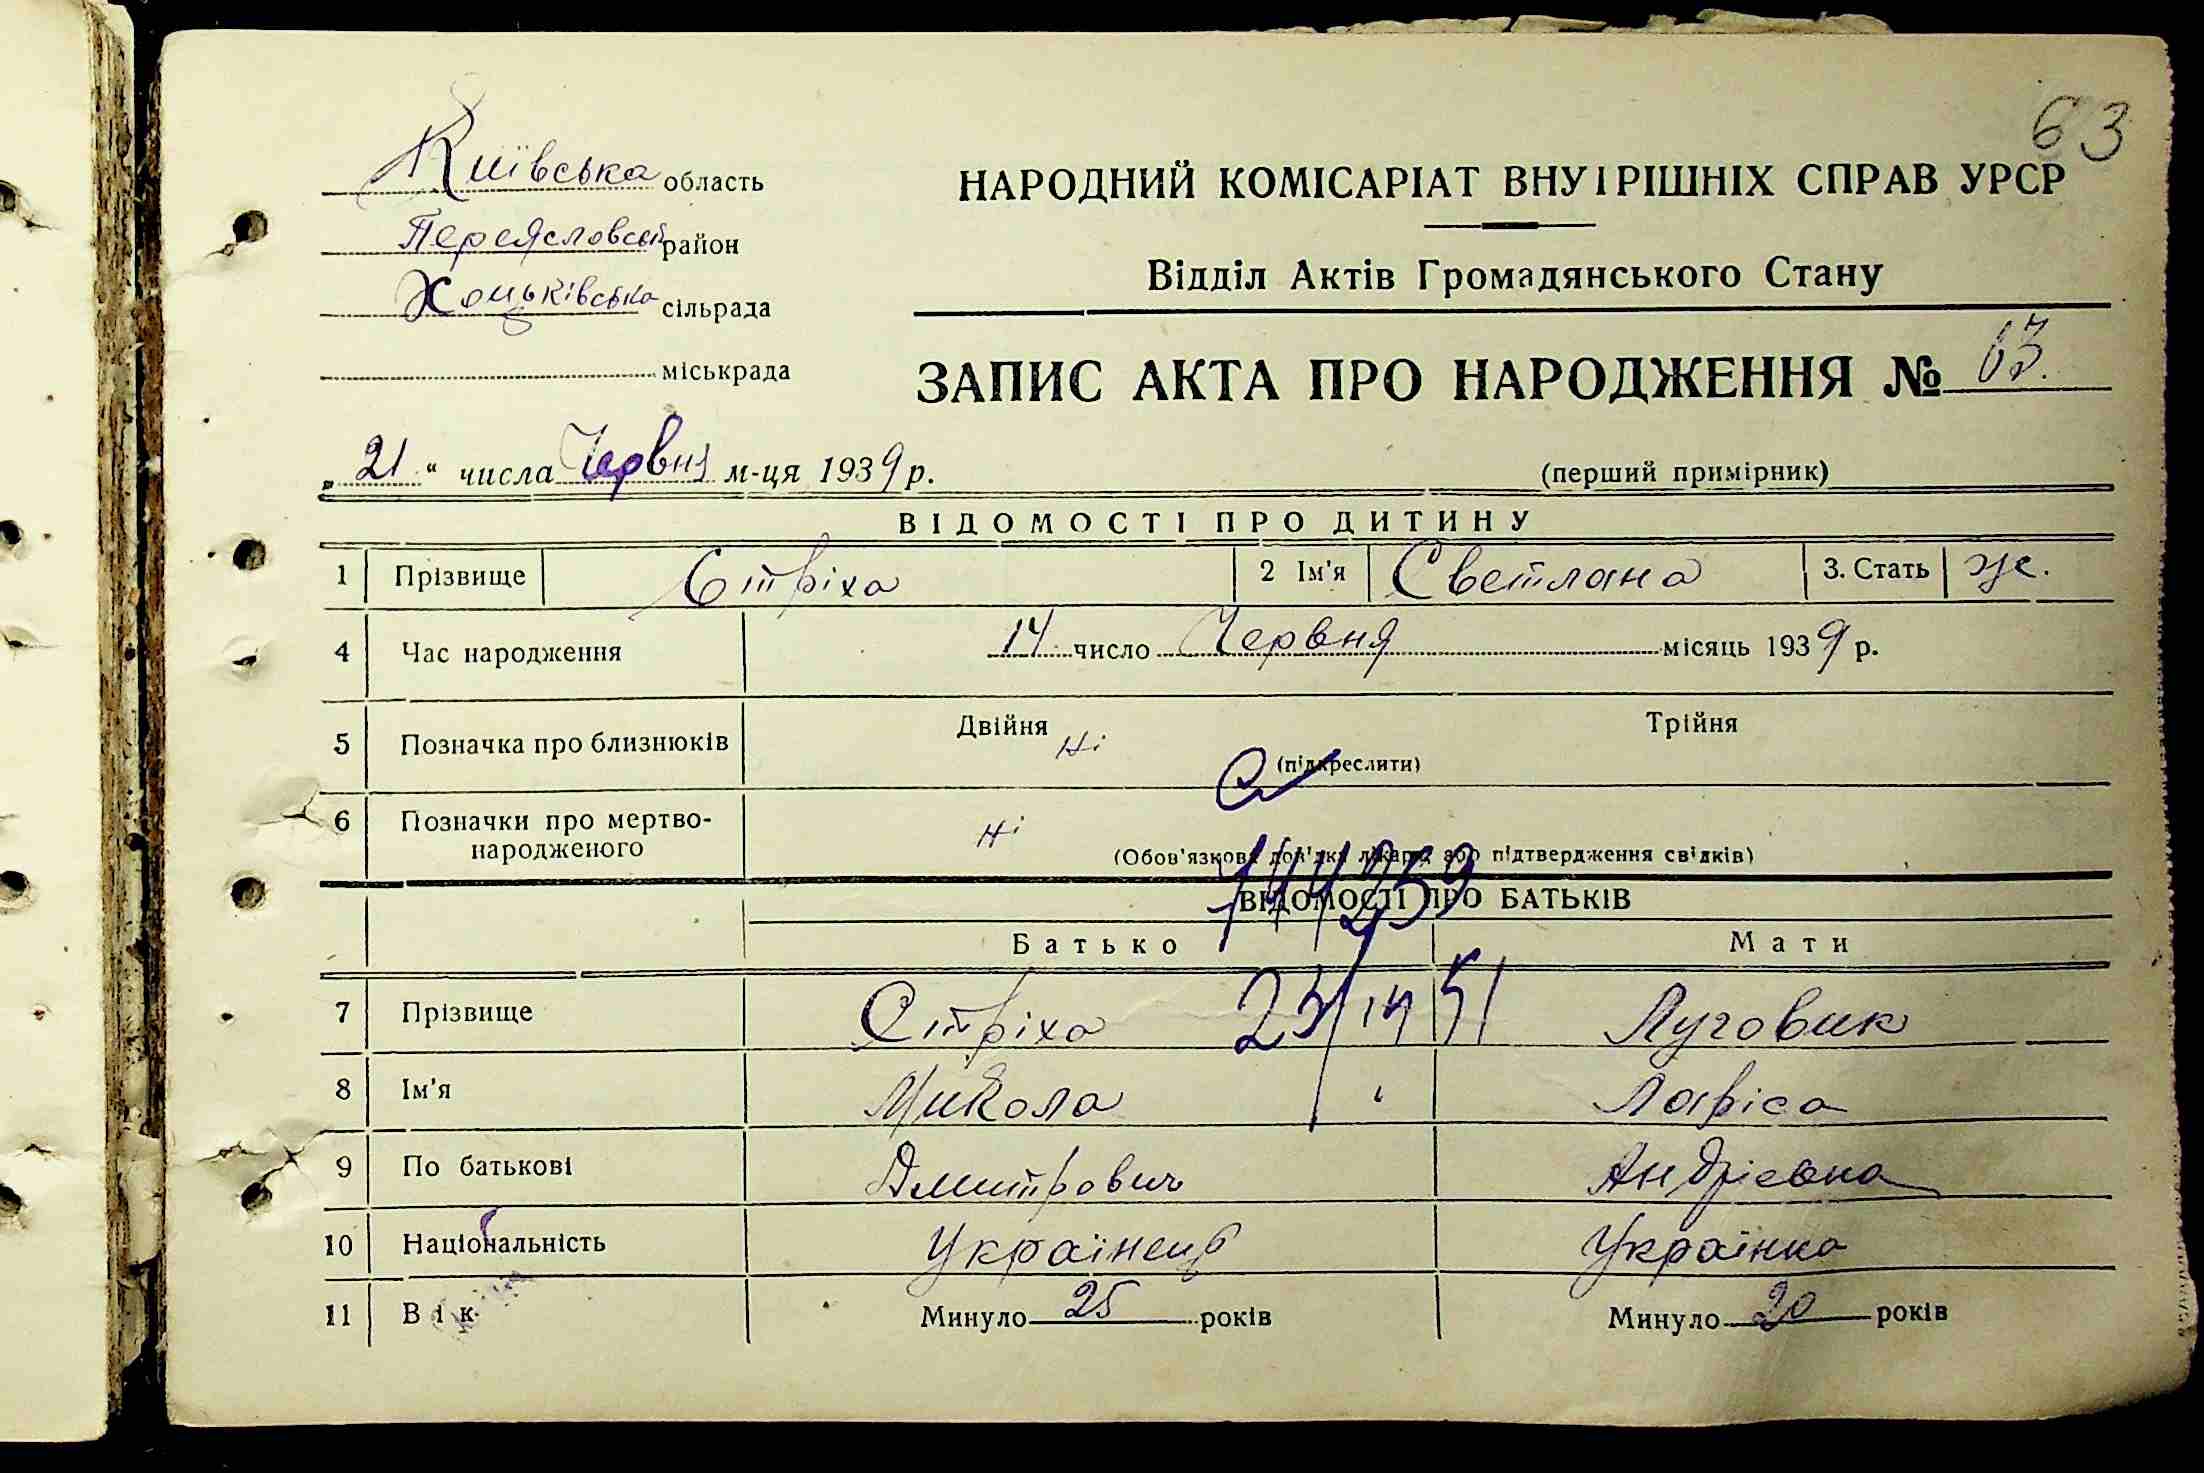 63
Київська область
Переясловський район
Хоцьківська сільрада
міськрада
НАРОДНИЙ КОМІСАРІАТ ВНУТРІШНІХ СПРАВ УРСР
Відділ Актів Громадянського Стану
ЗАПИС АКТА ПРО НАРОДЖЕННЯ № 63.
„21“ числа Червня м-ця 1939 р.
(перший примірник)
ВІДОМОСТІ ПРО ДИТИНУ
1 Прізвище Стріха 2 Ім'я Светлана 3. Стать Же.
4 Час народження 14 число Червня місяць 1939 р.
5 Позначка про близнюків Двійня Ні Трійня
(підкреслити)
6 Позначки про мертвонародженого Ні
(Обов'язкова довідка лікаря або підтвердження свідків)
144259
ВІДОМОСТІ ПРО БАТЬКІВ
Батько Мати
7 Прізвище Стріха Луговик
8 Ім'я Микола Ларіса
9 По батькові Дмитрович Андрієвна
10 Національність Українець Українка
11 Вік Минуло 25 років Минуло 20 років